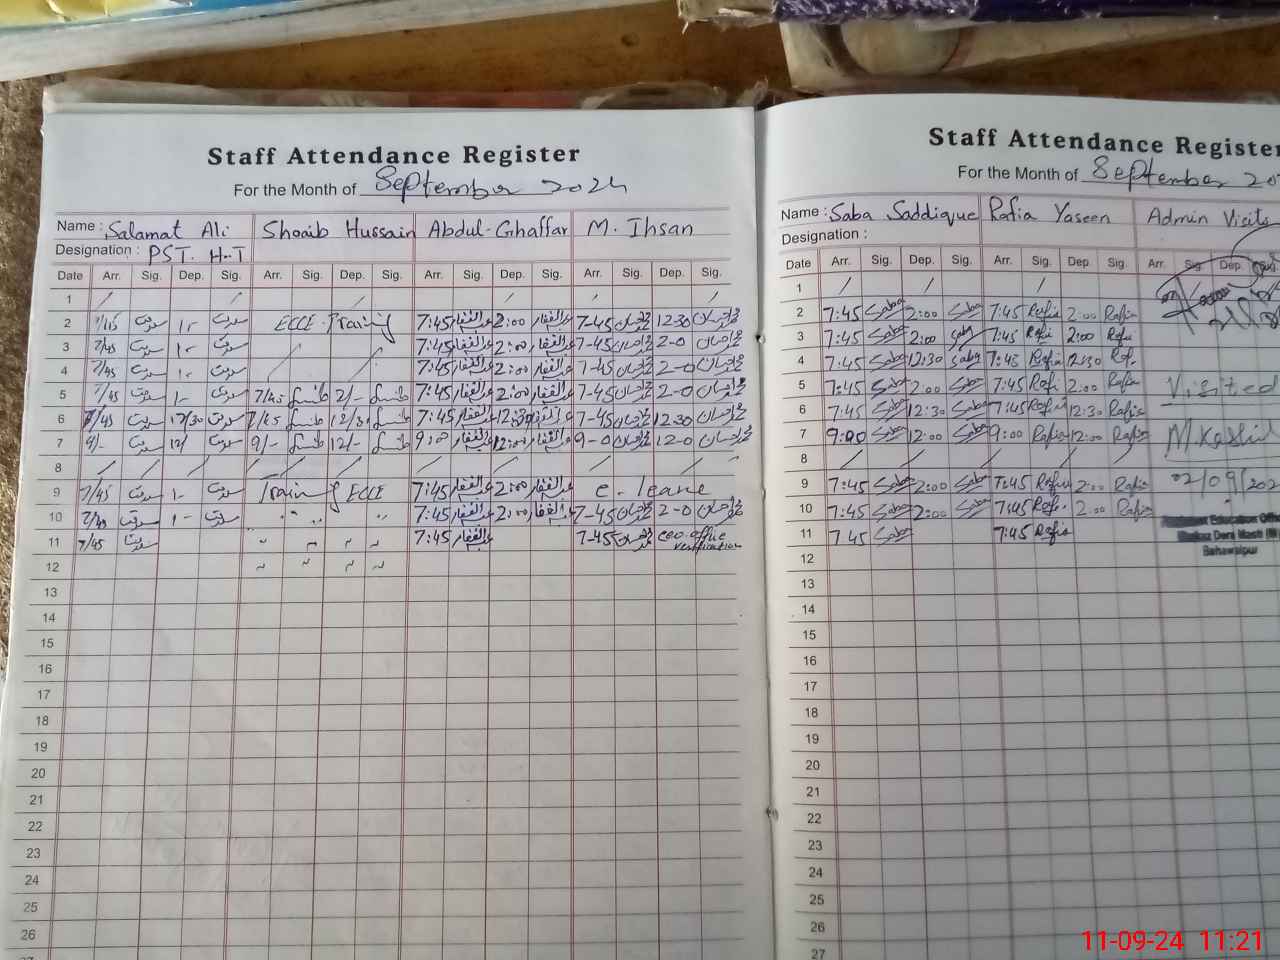 Staff Attendance Register
For the Month of September 2024
Name : Salamat Ali Shoaib Hussain Abdul-Ghaffar M. Ihsan
Designation : PST. H-T
Date Arr. Sig. Dep. Sig. Arr. Sig. Dep. Sig. Arr. Sig. Dep. Sig. Arr. Sig. Dep. Sig.
1
2 ECCE Training 7:45 عبدالغفار 2:00 عبدالغفار 7-45 12-30
3 7/45 1- 7:45 عبدالغفار 2:00 عبدالغفار 7-45 2-0
4 7/45 1- 7:45 عبدالغفار 2:00 عبدالغفار 7-45 2-0
5 7/45 1- 7/45 2/- 7:45 عبدالغفار 2:00 عبدالغفار 7-45 2-0
6 7/45 12/30 7/45 12/30 7:45 عبدالغفار 12:30 عبدالغفار 7-45 12-30
7 9/- 12/ 9/- 12/- 9:00 عبدالغفار 12:00 عبدالغفار 9-0 12-0
8
9 7/45 1- Training ECCE 7:45 عبدالغفار 2:00 عبدالغفار c. leave
10 7/45 1- 7:45 عبدالغفار 2:00 عبدالغفار 7-45 2-0
11 7/45 7:45 عبدالغفار 7-45 ceo office verification
12
13
14
15
16
17
18
19
20
21
22
23
24
25
26
Staff Attendance Register
For the Month of September
Name : Saba Saddique Rafia Yaseen Admin Visits
Designation :
Date Arr. Sig. Dep. Sig. Arr. Sig. Dep Sig. Arr. Sig. Dep.
1
2 7:45 Saba 2:00 Saba 7:45 Rafia 2:00 Rafia
3 7:45 Saba 2:00 Saba 7:45 Rafia 2:00 Rafia
4 7:45 Saba 12:30 Saba 7:45 Rafia 12:30 Rafia
5 7:45 Saba 2:00 Saba 7:45 Rafia 2:00 Rafia Visited
6 7:45 Saba 12:30 Saba 7:45 Rafia 12:30 Rafia
7 9:00 Saba 12:00 Saba 9:00 Rafia 12:00 Rafia M. Kashif
8
9 7:45 Saba 2:00 Saba 7:45 Rafia 2:00 Rafia 02/09/202
10 7:45 Saba 2:00 Saba 7:45 Rafia 2:00 Rafia
11 7:45 Saba 7:45 Rafia
Assistant Education Offi
Bahawalpur
12
13
14
15
16
17
18
19
20
21
22
23
24
25
26
27
11-09-24 11:21